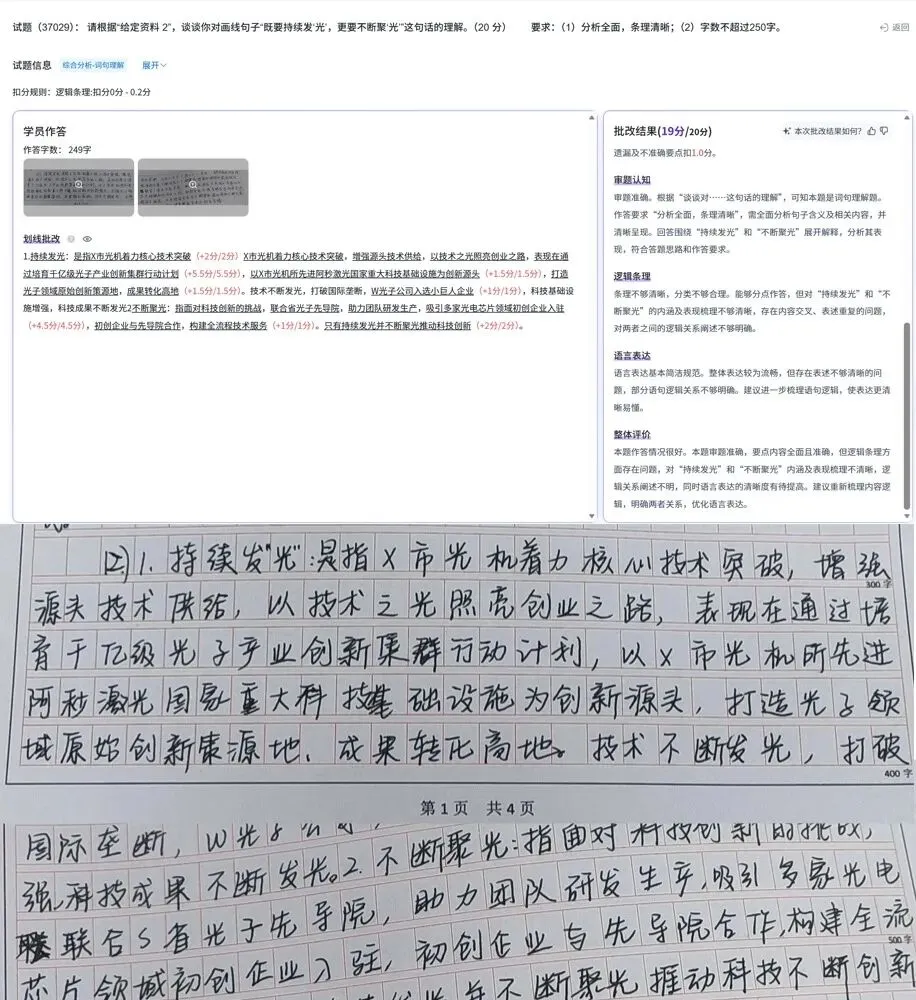 试题（37029）： 请根据“给定资料 2”，谈谈你对画线句子“既要持续发‘光’，更要不断聚‘光’”这句话的理解。（20 分） 要求：（1）分析全面，条理清晰；（2）字数不超过250字。
返回
试题信息 综合分析-词句理解 展开
扣分规则：逻辑条理:扣分0分 - 0.2分
学员作答
作答字数： 249字
划线批改
1.持续发光：是指X市光机着力核心技术突破（+2分/2分）X市光机着力核心技术突破，增强源头技术供给，以技术之光照亮创业之路，表现在通
过培育千亿级光子产业创新集群行动计划（+5.5分/5.5分），以X市光机所先进阿秒激光国家重大科技基础设施为创新源头（+1.5分/1.5分），打造
光子领域原始创新策源地，成果转化高地（+1.5分/1.5分）。技术不断发光，打破国际垄断，W光子公司入选小巨人企业（+1分/1分），科技基础设
施增强，科技成果不断发光2不断聚光：指面对科技创新的挑战，联合省光子先导院，助力团队研发生产，吸引多家光电芯片领域初创企业入驻
（+4.5分/4.5分），初创企业与先导院合作，构建全流程技术服务（+1分/1分）。只有持续发光并不断聚光推动科技创新（+2分/2分）。
批改结果(19分/20分)
本次批改结果如何？
遗漏及不准确要点扣1.0分。
审题认知
审题准确。根据“谈谈对……这句话的理解”，可知本题是词句理解题。
作答要求“分析全面，条理清晰”，需全面分析句子含义及相关内容，并
清晰呈现。回答围绕“持续发光”和“不断聚光”展开解释，分析其表
现，符合答题思路和作答要求。
逻辑条理
条理不够清晰，分类不够合理。能够分点作答，但对“持续发光”和“不
断聚光”的内涵及表现梳理不够清晰，存在内容交叉、表述重复的问题，
对两者之间的逻辑关系阐述不够明确。
语言表达
语言表达基本简洁规范。整体表达较为流畅，但存在表述不够清晰的问
题，部分语句逻辑关系不够明确。建议进一步梳理语句逻辑，使表达更清
晰易懂。
整体评价
本题作答情况很好。本题审题准确，要点内容全面且准确，但逻辑条理方
面存在问题，对“持续发光”和“不断聚光”内涵及表现梳理不清晰，逻
辑关系阐述不明，同时语言表达的清晰度有待提高。建议重新梳理内容逻
辑，明确两者关系，优化语言表达。
(2)1.持续发"光":是指X市光机着力核心技术突破，增强
300字
源头技术供给，以技术之光照亮创业之路，表现在通过培
育千亿级光子产业创新集群行动计划，以X市光机所先进
阿秒激光国家重大科技基础设施为创新源头，打造光子领
域原始创新策源地、成果转化高地。技术不断发光，打破
400字
第1页 共4页
国际垄断，W光子公司，
指面对科技创新的挑战，
强，科技成果不断发光。2.不断聚光:
联合S省光子先导院，助力团队研发生产，吸引多家光电
500字
芯片领域初创企业入驻，初创企业与先导院合作，构建全流
不断聚光推动科技不断创新